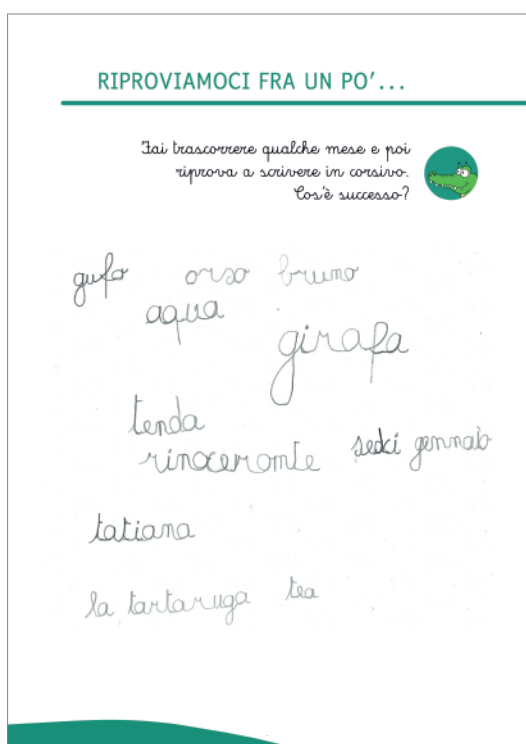 RIPROVIAMOCI FRA UN PO'...
Fai trascorrere qualche mese e poi
riprova a scrivere in corsivo.
Cos'è successo?
gufo orso bruno
aqua
girafa
tenda
rinoceronte sedci gennaio
tatiana
la tartaruga tea